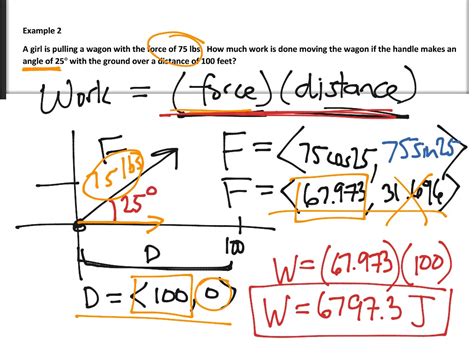 Example 2
A girl is pulling a wagon with the force of 75 lbs. How much work is done moving the wagon if the handle makes an
angle of 25° with the ground over a distance of 100 feet?
Work = (force)(distance)
F
75 lbs
25°
D
100
D = <100, 0>
F = <75cos25, 75sin25>
F = <67.973, 31.696>
W = (67.973)(100)
W = 6797.3 J